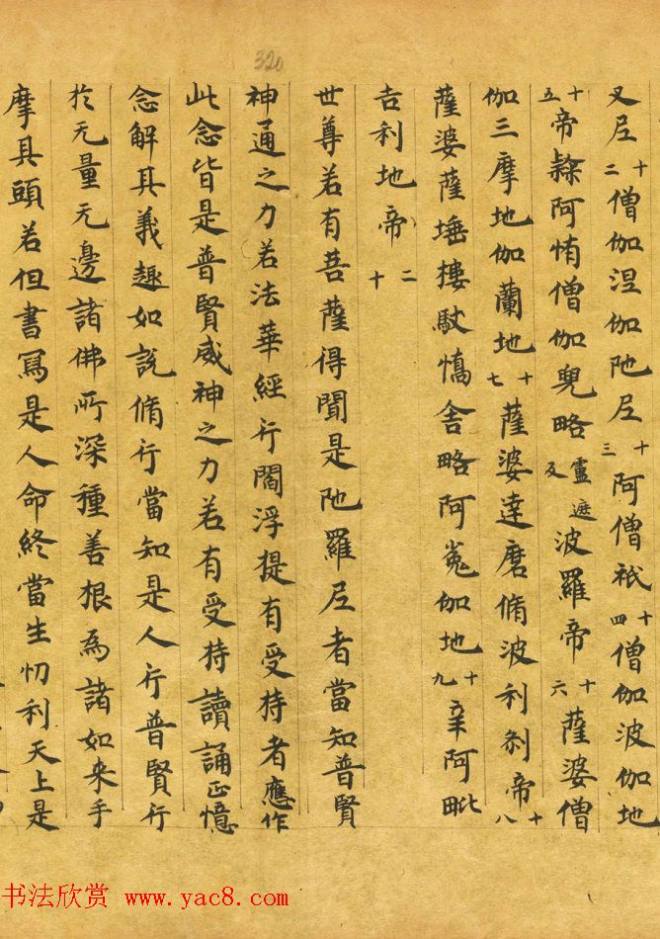 320
叉尼十二僧伽涅伽陁尼十三阿僧祇十四僧伽波伽地
十五帝隸阿惰僧伽兜略盧遮反波羅帝十六薩婆僧
伽三摩地伽蘭地十七薩婆達磨脩波利刹帝十八
薩婆薩埵樓馱憍舍略阿㝹伽地十九辛阿毗
吉利地帝二十
世尊若有菩薩得聞是陁羅尼者當知普賢
神通之力若法華經行閻浮提有受持者應作
此念皆是普賢威神之力若有受持讀誦正憶
念解其義趣如說脩行當知是人行普賢行
於无量无邊諸佛所深種善根為諸如來手
摩其頭若但書寫是人命終當生忉利天上是
书法欣赏 www.yac8.com